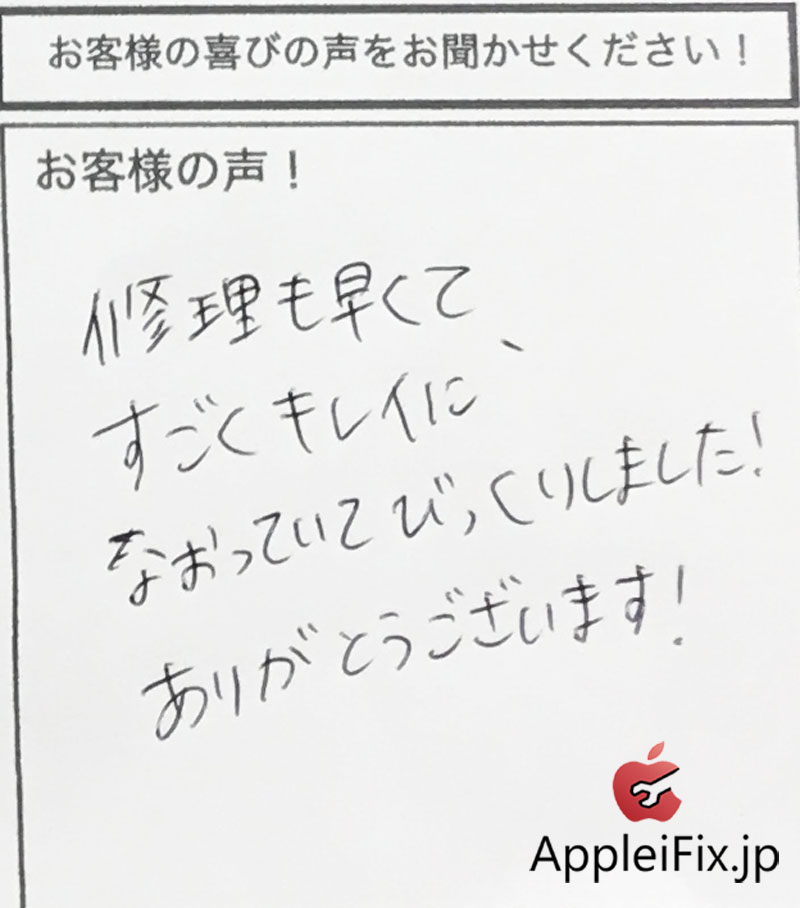 お客様の喜びの声をお聞かせください！
お客様の声！
修理も早くて、
すごくキレイに
なおっていてびっくりしました!
ありがとうございます!
AppleiFix.jp